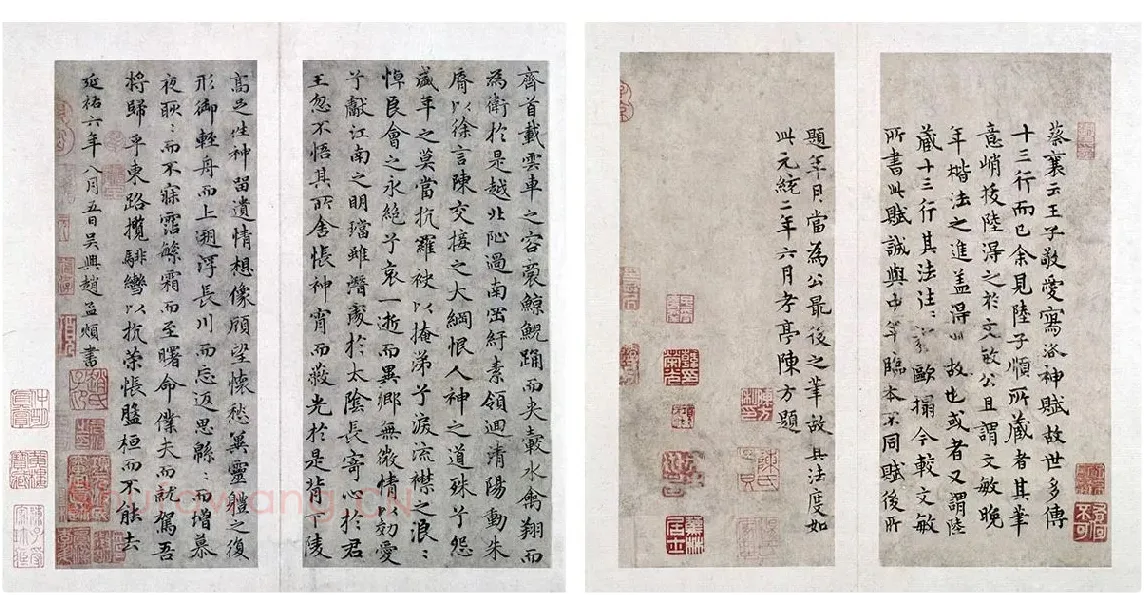 齊首載雲車之容裔鯨鯢踊而夾轂水禽翔而
為衛於是越北沚過南岡紆素領迴清陽動朱
脣以徐言陳交接之大綱恨人神之道殊兮怨
盛年之莫當抗羅袂以掩涕兮淚流襟之浪〻
悼良會之永絕兮哀一逝而異鄉無微情以効愛
兮獻江南之明璫雖潛處於太陰長寄心於君
王忽不悟其所舍悵神宵而蔽光於是背下陵
高足往神留遺情想像顧望懷愁冀靈體之復
形御輕舟而上遡浮長川而忘返思緜〻而增慕
夜耿〻而不寐霑繁霜而至曙命僕夫而就駕吾
將歸乎東路攬騑轡以抗策悵盤桓而不能去
延祐六年八月五日吴興趙孟頫書
蔡襄云王子敬愛寫洛神賦故世多傳
十三行而已余見陸子順所藏者其筆
意峭拔陸得之於文敏公且謂文敏晚
年楷法之進蓋得此故也或者又謂陸
藏十三行其法歐搨今較文敏
所書此賦誠與中年臨本不同賦後所
題年月當為公最後之筆故其法度如
此元統二年六月孝亭陳方題